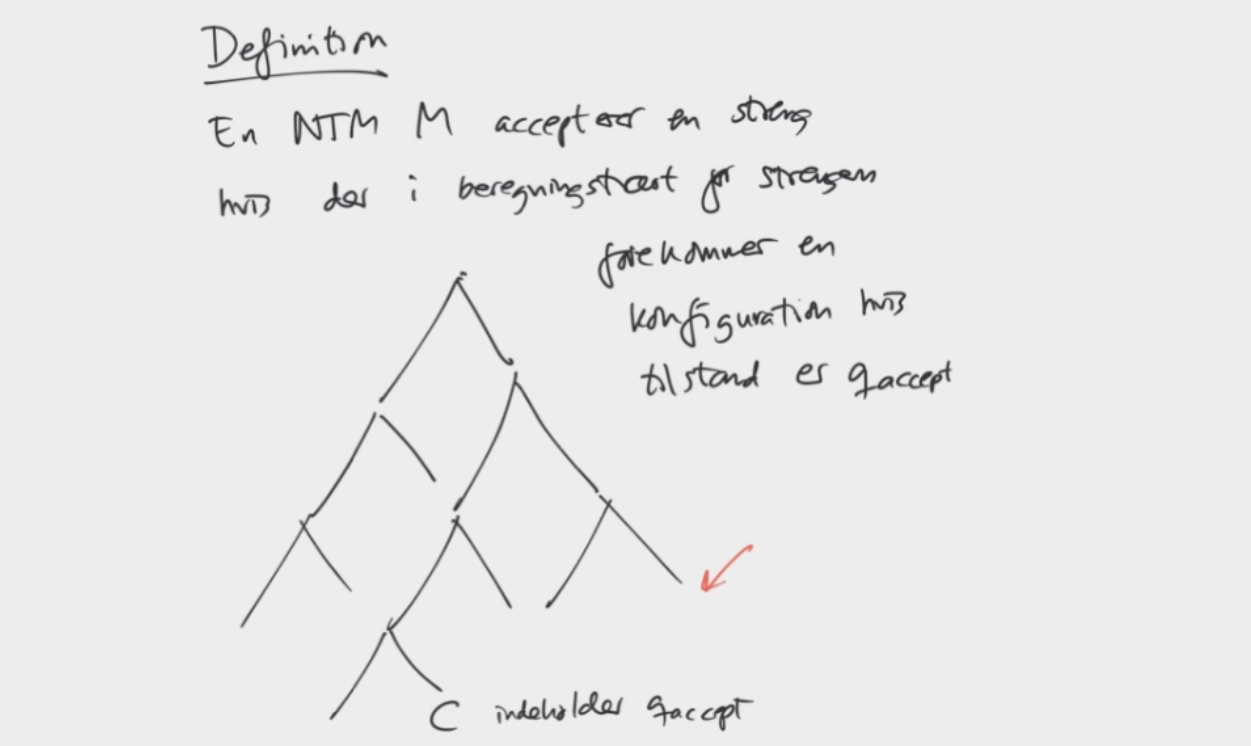 Definition
En NTM M accepterer en streng
hvis der i beregningstræet for strengen
forekommer en
konfiguration hvis
tilstand er qaccept
C indeholder qaccept